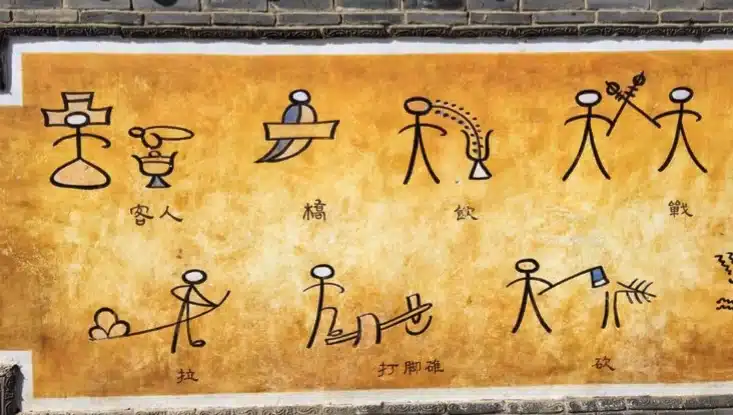 客人 橋 飲 戰
拉 打脚碓 砍